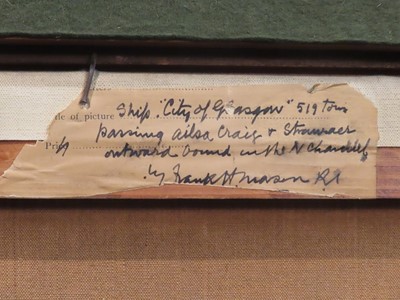 Ship. "City of Glasgow" 519 tons
de of picture
passing Ailsa Craig & Stranraer
Pri
outward bound in the N Channel
by Frank H. Mason R.I.